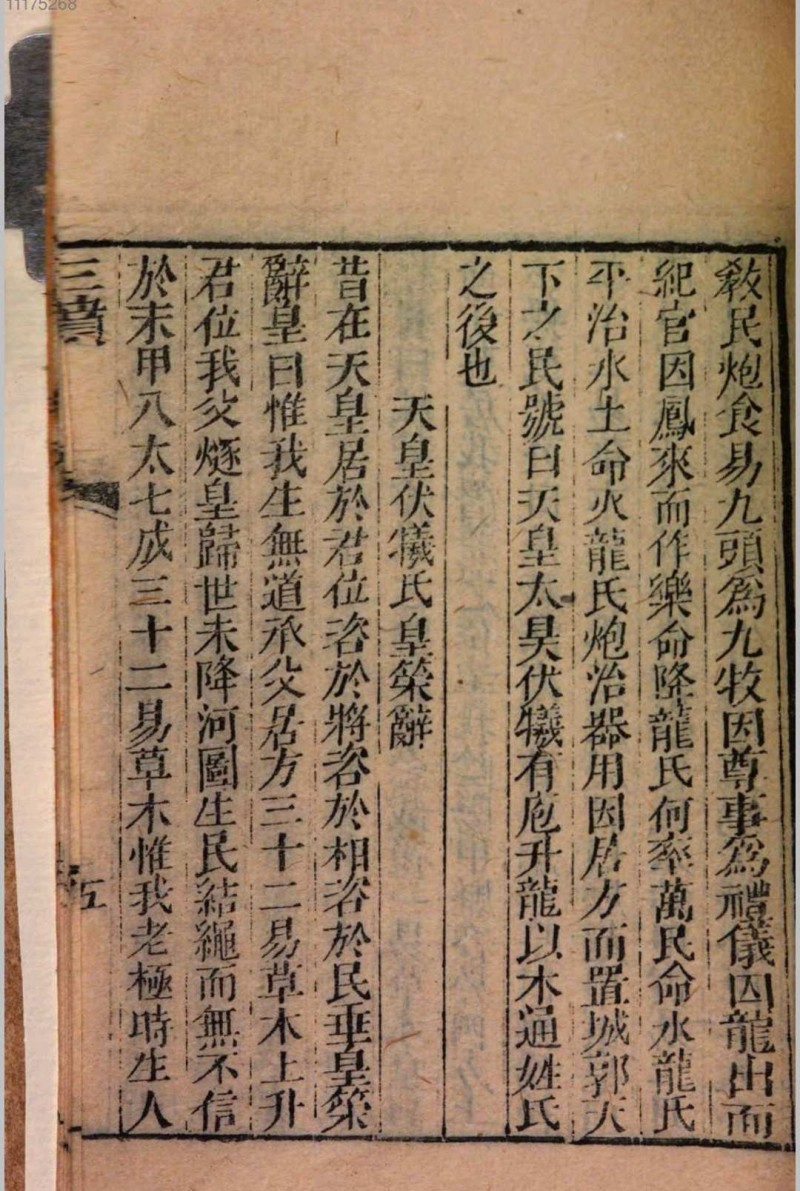 11175268
教民炮食易九頭為九牧因尊事為禮儀因龍出而
紀官因鳳來而作樂命降龍氏何率萬民命水龍氏
平治水土命火龍氏炮治器用因居方而置城郭天
下之民號曰天皇太昊伏犧有庖升龍以木通姓氏
之後也
天皇伏犧氏皇策辭
昔在天皇居於君位咨於將咨於相咨於民垂皇策
辭皇曰惟我生無道承父居方三十二易草木上升
君位我父燧皇歸世未降河圖生民結繩而無不信
於末甲八太七成三十二易草木惟我老極時生人
三墳
五